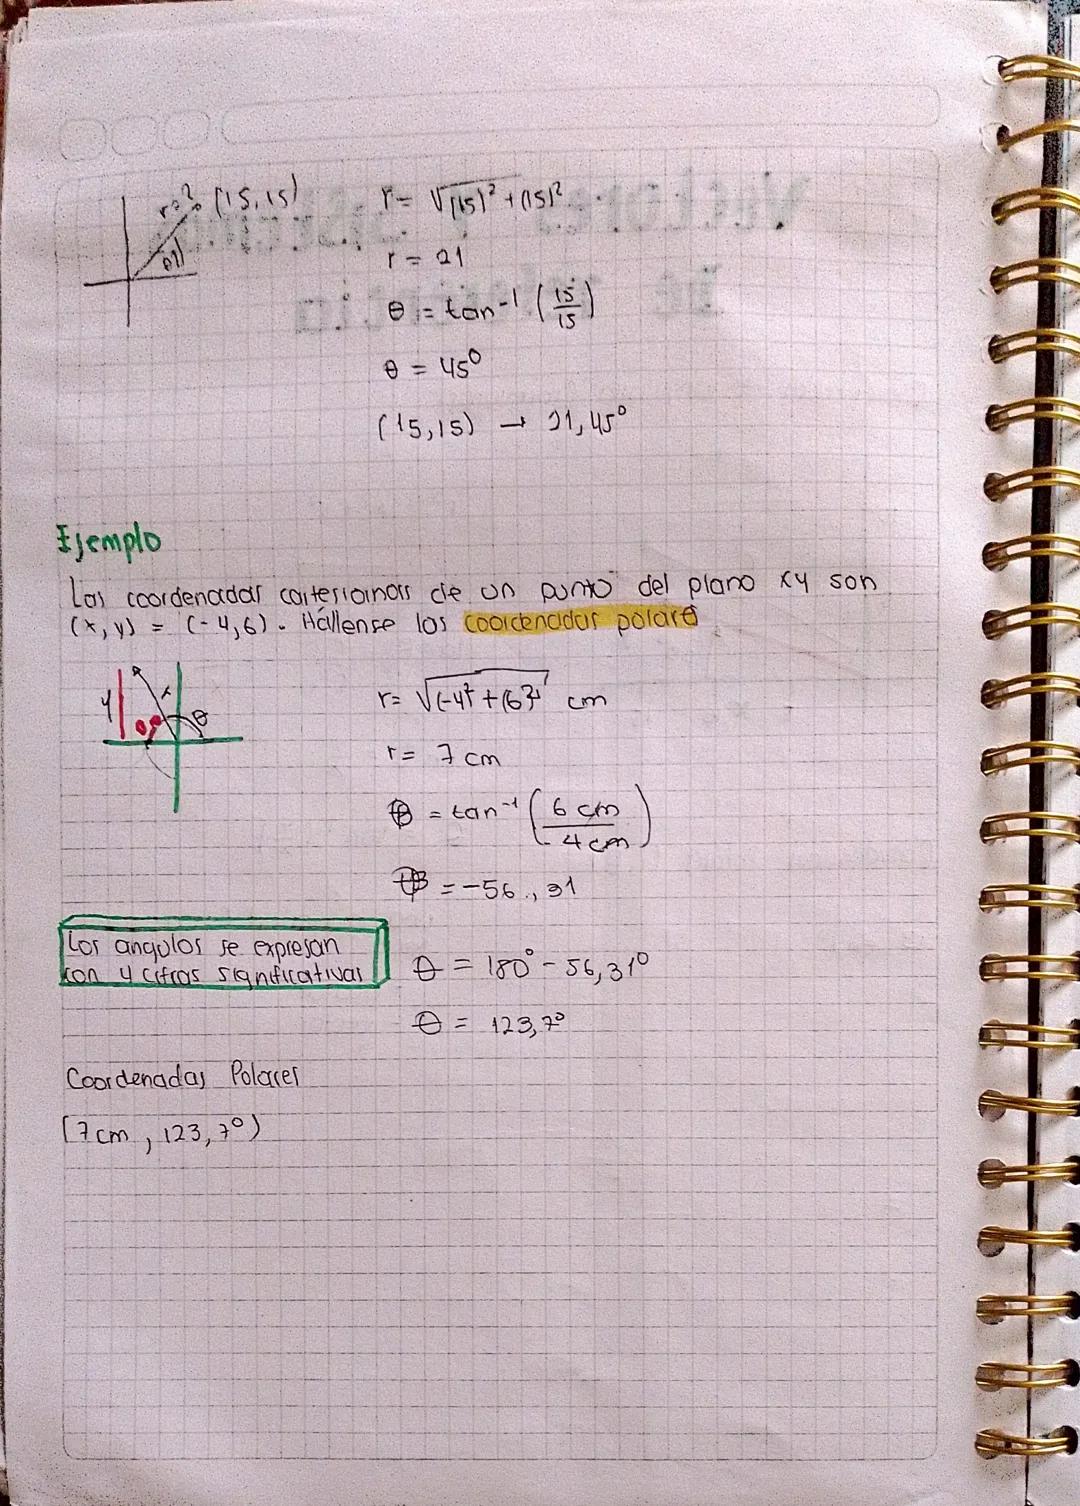 r=? (15,15)
θ
r= √(15)² + (15)²
r = 21
θ = tan⁻¹ (15/15)
θ = 45°
(15,15) → 21, 45°
Ejemplo
Las coordenadas cartesianas de un punto del plano xy son
(x,y) = (-4,6). Hállense las coordenadas polares
y r θ
r= √(-4)² + (6)² cm
r= 7 cm
= tan⁻¹ (6 cm / -4 cm)
= -56,31
Los angulos se expresan
con 4 cifras significativas
θ = 180° - 56,31°
θ = 123,7°
Coordenadas Polares
(7cm, 123,7°)